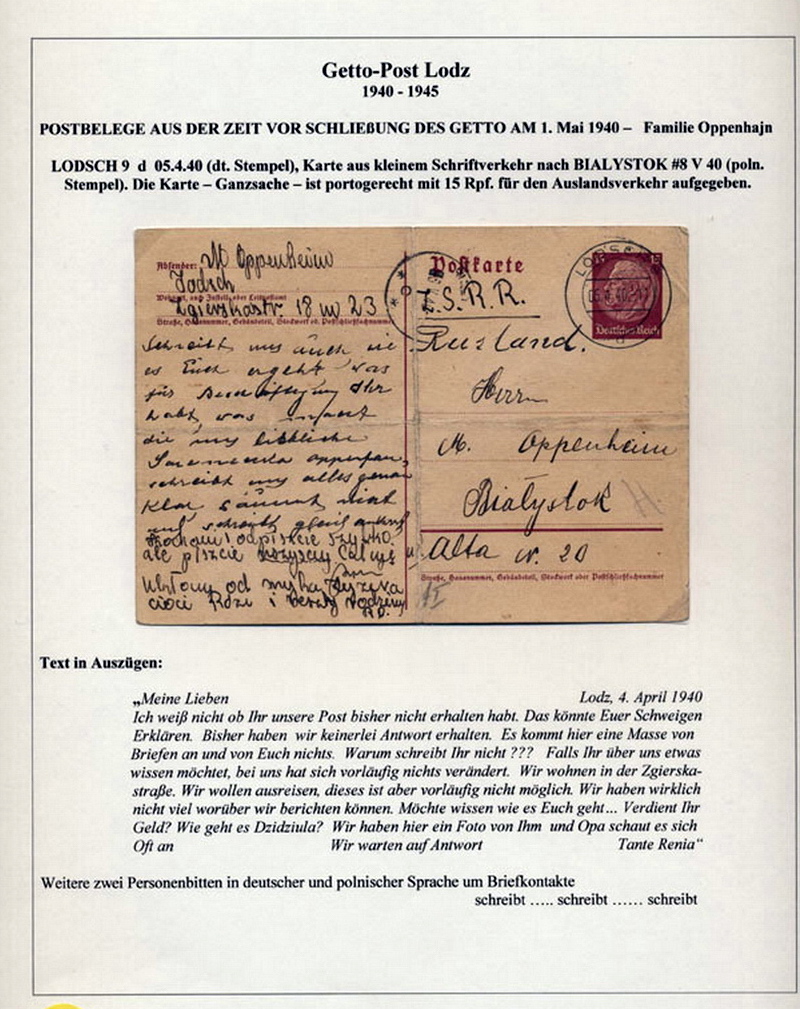 Getto-Post Lodz
1940 - 1945
POSTBELEGE AUS DER ZEIT VOR SCHLIEßUNG DES GETTO AM 1. Mai 1940 – Familie Oppenhajn
LODSCH 9 d 05.4.40 (dt. Stempel), Karte aus kleinem Schriftverkehr nach BIALYSTOK #8 V 40 (poln.
Stempel). Die Karte – Ganzsache – ist portogerecht mit 15 Rpf. für den Auslandsverkehr aufgegeben.
Absender: M Oppenheim
Lodsch
Wohnort, auch Zustell- oder Leitpostamt
Zgierskastr. 18 w 23
Straße, Hausnummer, Gebäudeteil, Stockwerk od. Postschließfachnummer
Schreibt uns auch wie
es Euch ergeht was
für Beschäftigung Ihr
habt, was
die uns
schreibt uns alles genau
klar säumt nicht
und schreibt gleich
Kochani odpiszcie szybko
ale piszcie wszyscy
od
cioci Rózi i
Postkarte
Z.S.R.R.
Rusland.
Herrn
M. Oppenheim
Białystok
Alta nr. 20
Straße, Hausnummer, Gebäudeteil, Stockwerk oder Postschließfachnummer
LODSCH
15
Deutsches Reich
Text in Auszügen:
„Meine Lieben Lodz, 4. April 1940
Ich weiß nicht ob Ihr unsere Post bisher nicht erhalten habt. Das könnte Euer Schweigen
Erklären. Bisher haben wir keinerlei Antwort erhalten. Es kommt hier eine Masse von
Briefen an und von Euch nichts. Warum schreibt Ihr nicht ??? Falls Ihr über uns etwas
wissen möchtet, bei uns hat sich vorläufig nichts verändert. Wir wohnen in der Zgierska-
straße. Wir wollen ausreisen, dieses ist aber vorläufig nicht möglich. Wir haben wirklich
nicht viel worüber wir berichten können. Möchte wissen wie es Euch geht... Verdient Ihr
Geld? Wie geht es Dzidziula? Wir haben hier ein Foto von Ihm und Opa schaut es sich
Oft an Wir warten auf Antwort Tante Renia“
Weitere zwei Personenbitten in deutscher und polnischer Sprache um Briefkontakte
schreibt ..... schreibt ...... schreibt